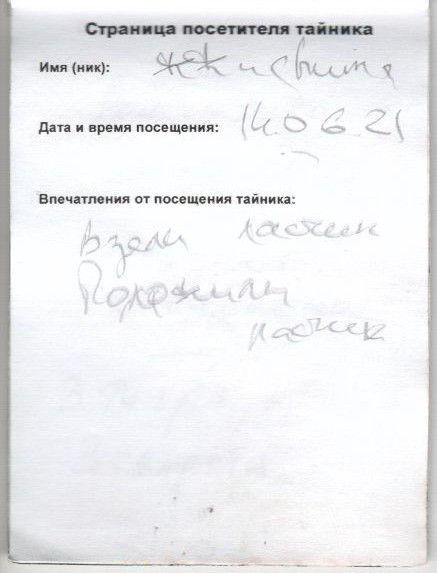 Страница посетителя тайника
Имя (ник):
Дата и время посещения: 14.06.21
Впечатления от посещения тайника:
Взяли ластик
Положили
ластик